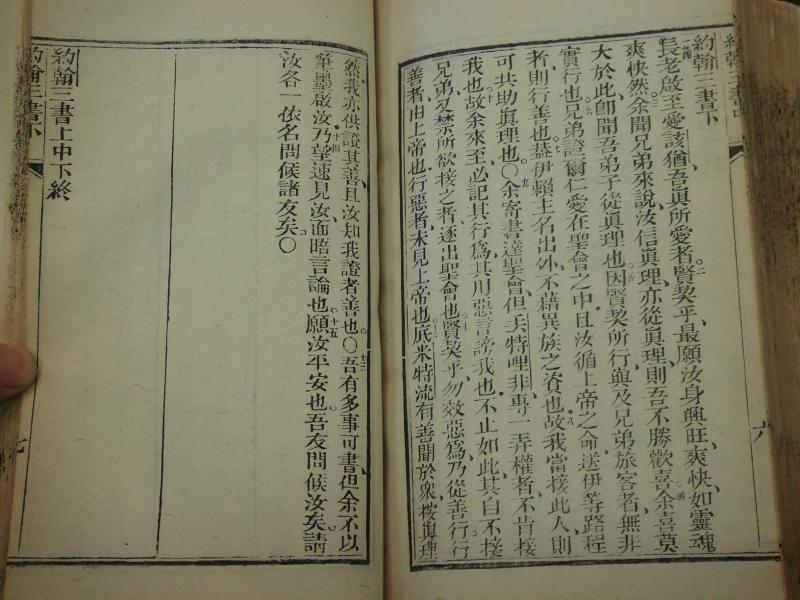 約翰三書下
長老啟至愛該猶吾眞所愛者賢契乎最願汝身興旺爽快如靈魂
爽快然余聞兄弟來說汝信眞理亦從眞理則吾不勝歡喜余喜莫
大於此卽聞吾弟子從眞理也因賢契所行與及兄弟旅客者無非
實行也兄弟證爾仁愛在聖會之中且汝循上帝之命送伊等路程
者則行善也葢伊賴主名出外不藉異族之資也故我當接此人則
可共助眞理也〇余寄書達聖會但丟特哩非專一弄權者不肯接
我也故余來至必記其行爲其用惡言謗我也不止如此其自不接
兄弟又禁所欲接之者逐出聖會也賢契乎勿效惡爲乃從善行行
善者由上帝也行惡者未見上帝也底米特流有善聞於衆按眞理
然我亦供證其善且汝知我證者善也〇吾有多事可書但余不以
筆墨啟汝乃望速見汝面晤言論也願汝平安也吾友問候汝矣請
汝各一依名問候諸友矣〇
約翰三書上中下終
約翰三書下
七
六